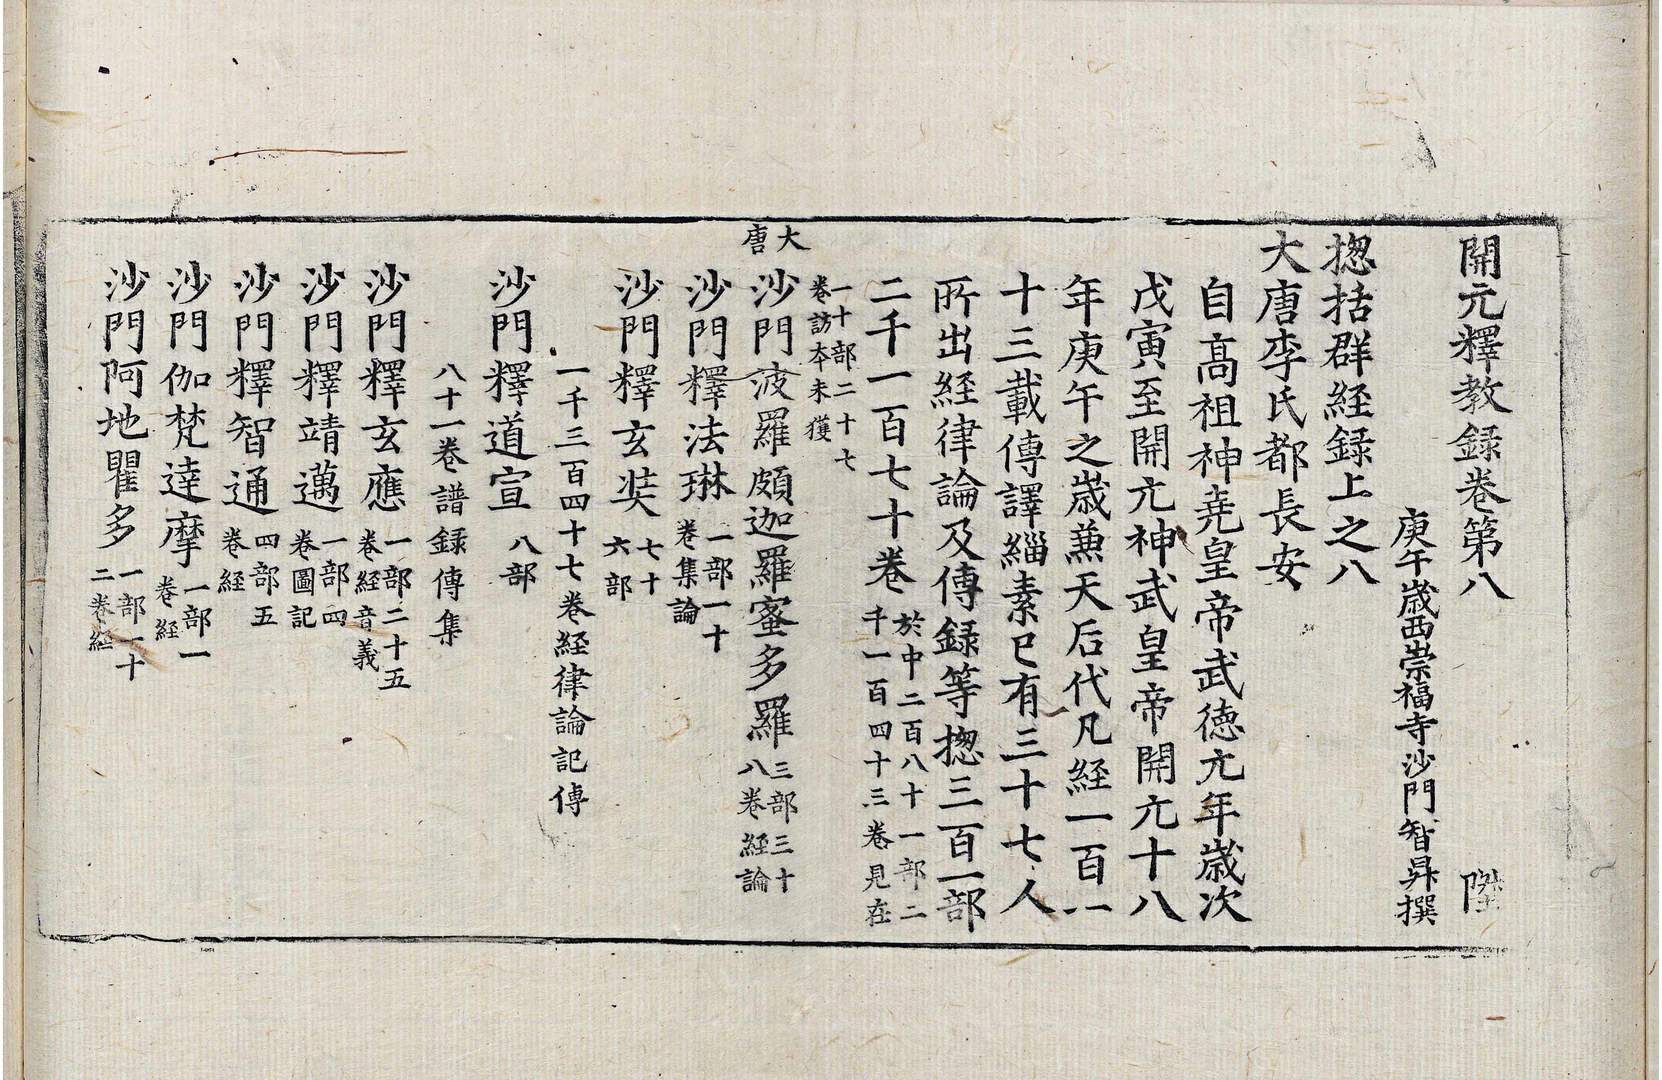 開元釋教錄卷第八 陞
庚午歲西崇福寺沙門智昇撰
捴括群経錄上之八
大唐李氏都長安
自高祖神堯皇帝武德元年歲次
戊寅至開元神武皇帝開元十八
年庚午之歲兼天后代凡経一百一
十三載傳譯緇素已有三十七人
所出経律論及傳錄等捴三百一部
二千一百七十卷 於中二百八十一部二
千一百四十三卷見在
一十部二十七
卷訪本未獲
大唐
沙門波羅頗迦羅蜜多羅 三部三十
八卷経論
沙門釋法琳 一部一十
卷集論
沙門釋玄奘 七十
六部
一千三百四十七卷経律論記傳
沙門釋道宣 八部
八十一卷譜錄傳集
沙門釋玄應 一部二十五
卷経音義
沙門釋靖邁 一部四
卷圖記
沙門釋智通 四部五
卷経
沙門伽梵達摩 一部一
卷経
沙門阿地瞿多 一部一十
二卷経